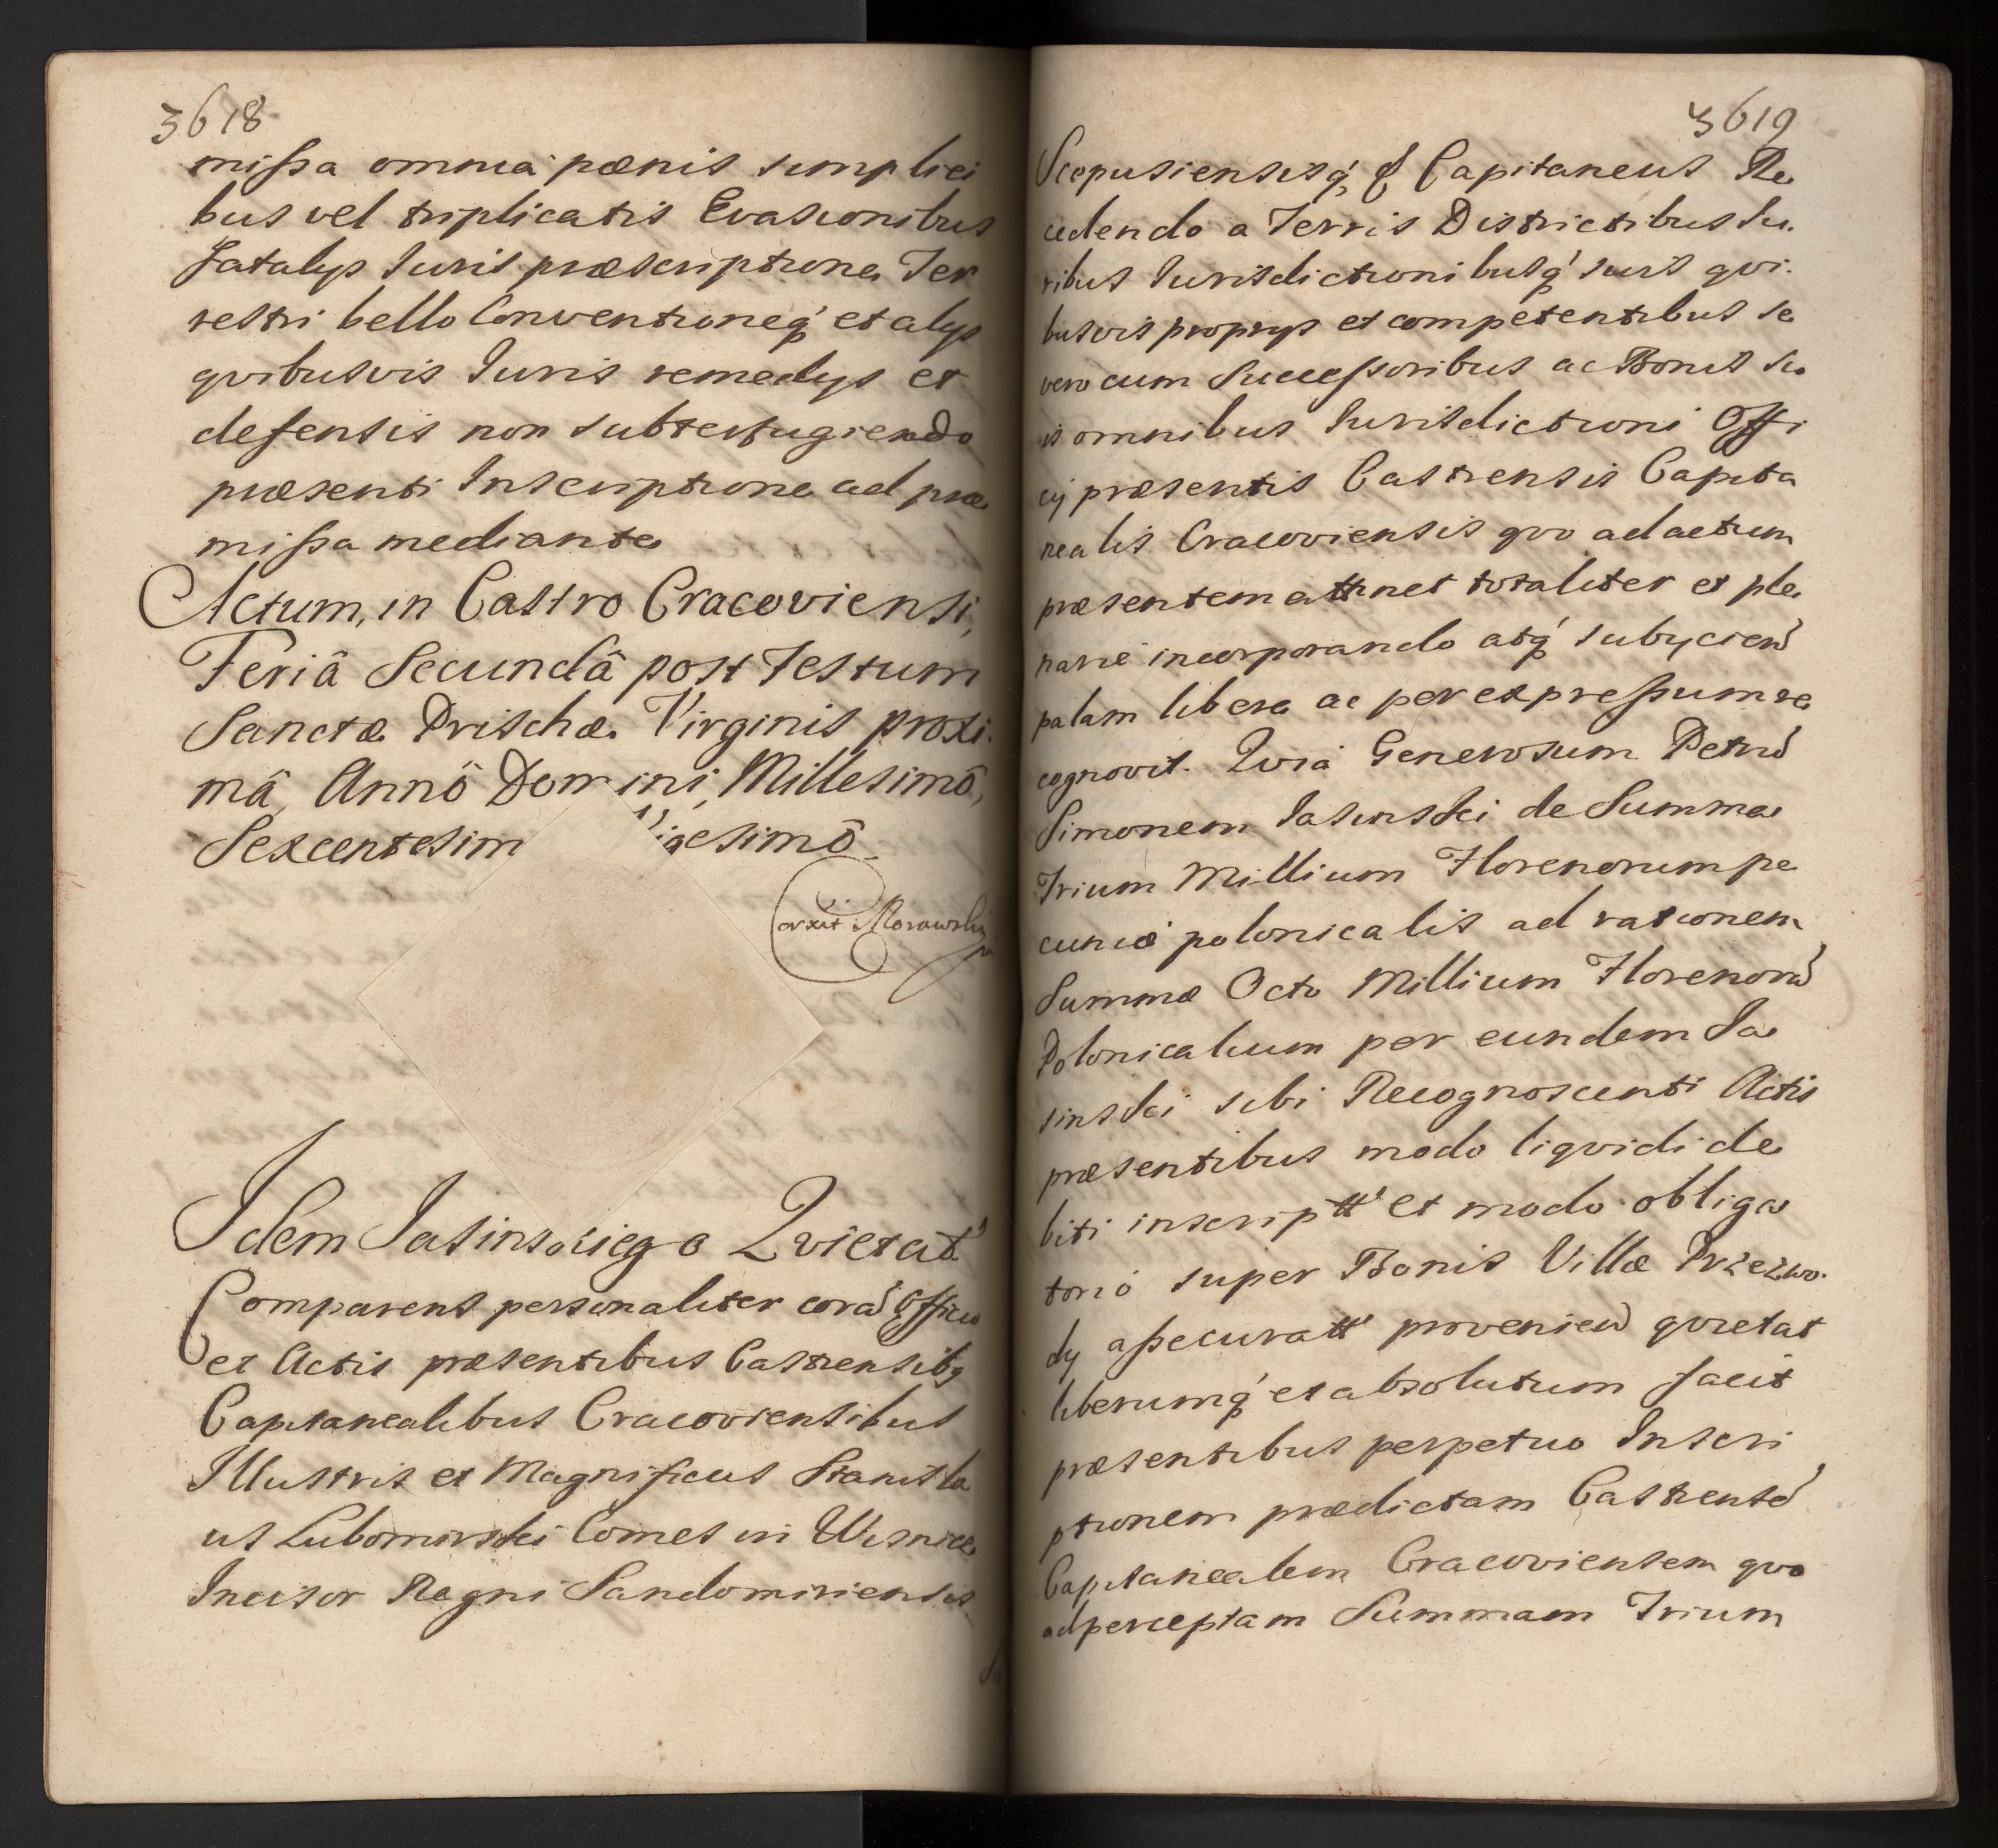 3618
missa omnia pœnis simplici
bus vel triplicatis Evasionibus
fatalys Iuris præscriptione Ter
restri bello Conventioneq́ et alys
qvibusvis Iuris remedys et
defensis non subterfugiendo
præsenti Inscriptione ad præ
missa mediante
Actum, in Castro Cracoviensi,
Feriâ Secundâ post Festum
Sanctæ Prischæ Virginis proxi.
mâ, Annô Domini, Millesimô,
Sexcentesim igesimô
Corxit Morawski
Idem Jasinskiego Qvietat
Comparens personaliter corã Officio
et Actis præsentibus Castrensibq
Capitanealibus Cracoviensibus
Illustris et Magnificus Stanisla
us Lubomirski Comes in Wisnice
Incisor Regni Sandomiriensis
3619
Scepusiensisq́ & Capitaneus Re
cedendo a Terris Districtibus Iu.
ribus Iurisdictionibusq́ suis qvi.
busvis proprys et competentibus se
vero cum Successoribus ac Bonis su
is omnibus Iurisdictioni Offi
cij præsentis Castrensis Capita
nealis Cracoviensis qvo ad actum
præsentem attinet totaliter et ple
narie incorporando atq́ subyciend
palam libere ac per expressum re
cognovit. Qvia Generosum Petrũ
Simonem Jasinski de Summa
Trium Millium Florenorum pe
cuniæ polonicalis ad rationem
Summæ Octo Millium Florenorũ
Polonicalium per eundem Ja
sinski sibi Recognoscenti Actis
præsentibus modo liqvidi de
biti inscriptt et modo obliga
torio super Bonis Villæ Przezwo.
dy assecuratt provenien qvietat
liberumq́ et absolutum facit
præsentibus perpetuo Inscri
ptionem prædictam Castrensẽ
Capitanealem Cracoviensem qvo
ad perceptam Summam Trium